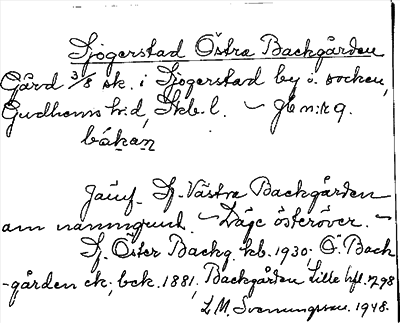 Sjögerstad Östra Backgården
Gård 3/8 sk. i Sjögerstad by o. socken,
Gudhems h:d, Skb. l. ~ Jb n:r 9.
båkaṉ
Jämf. Sj. Västra Backgården
am namngrund. ~ Läge österöver. ~
Sj. Öster Backg. kb. 1930; Ö. Back
-gården ek; bck. 1881, Backgården, Lille hfl. 1798
L M. Svenungsson. 1948.